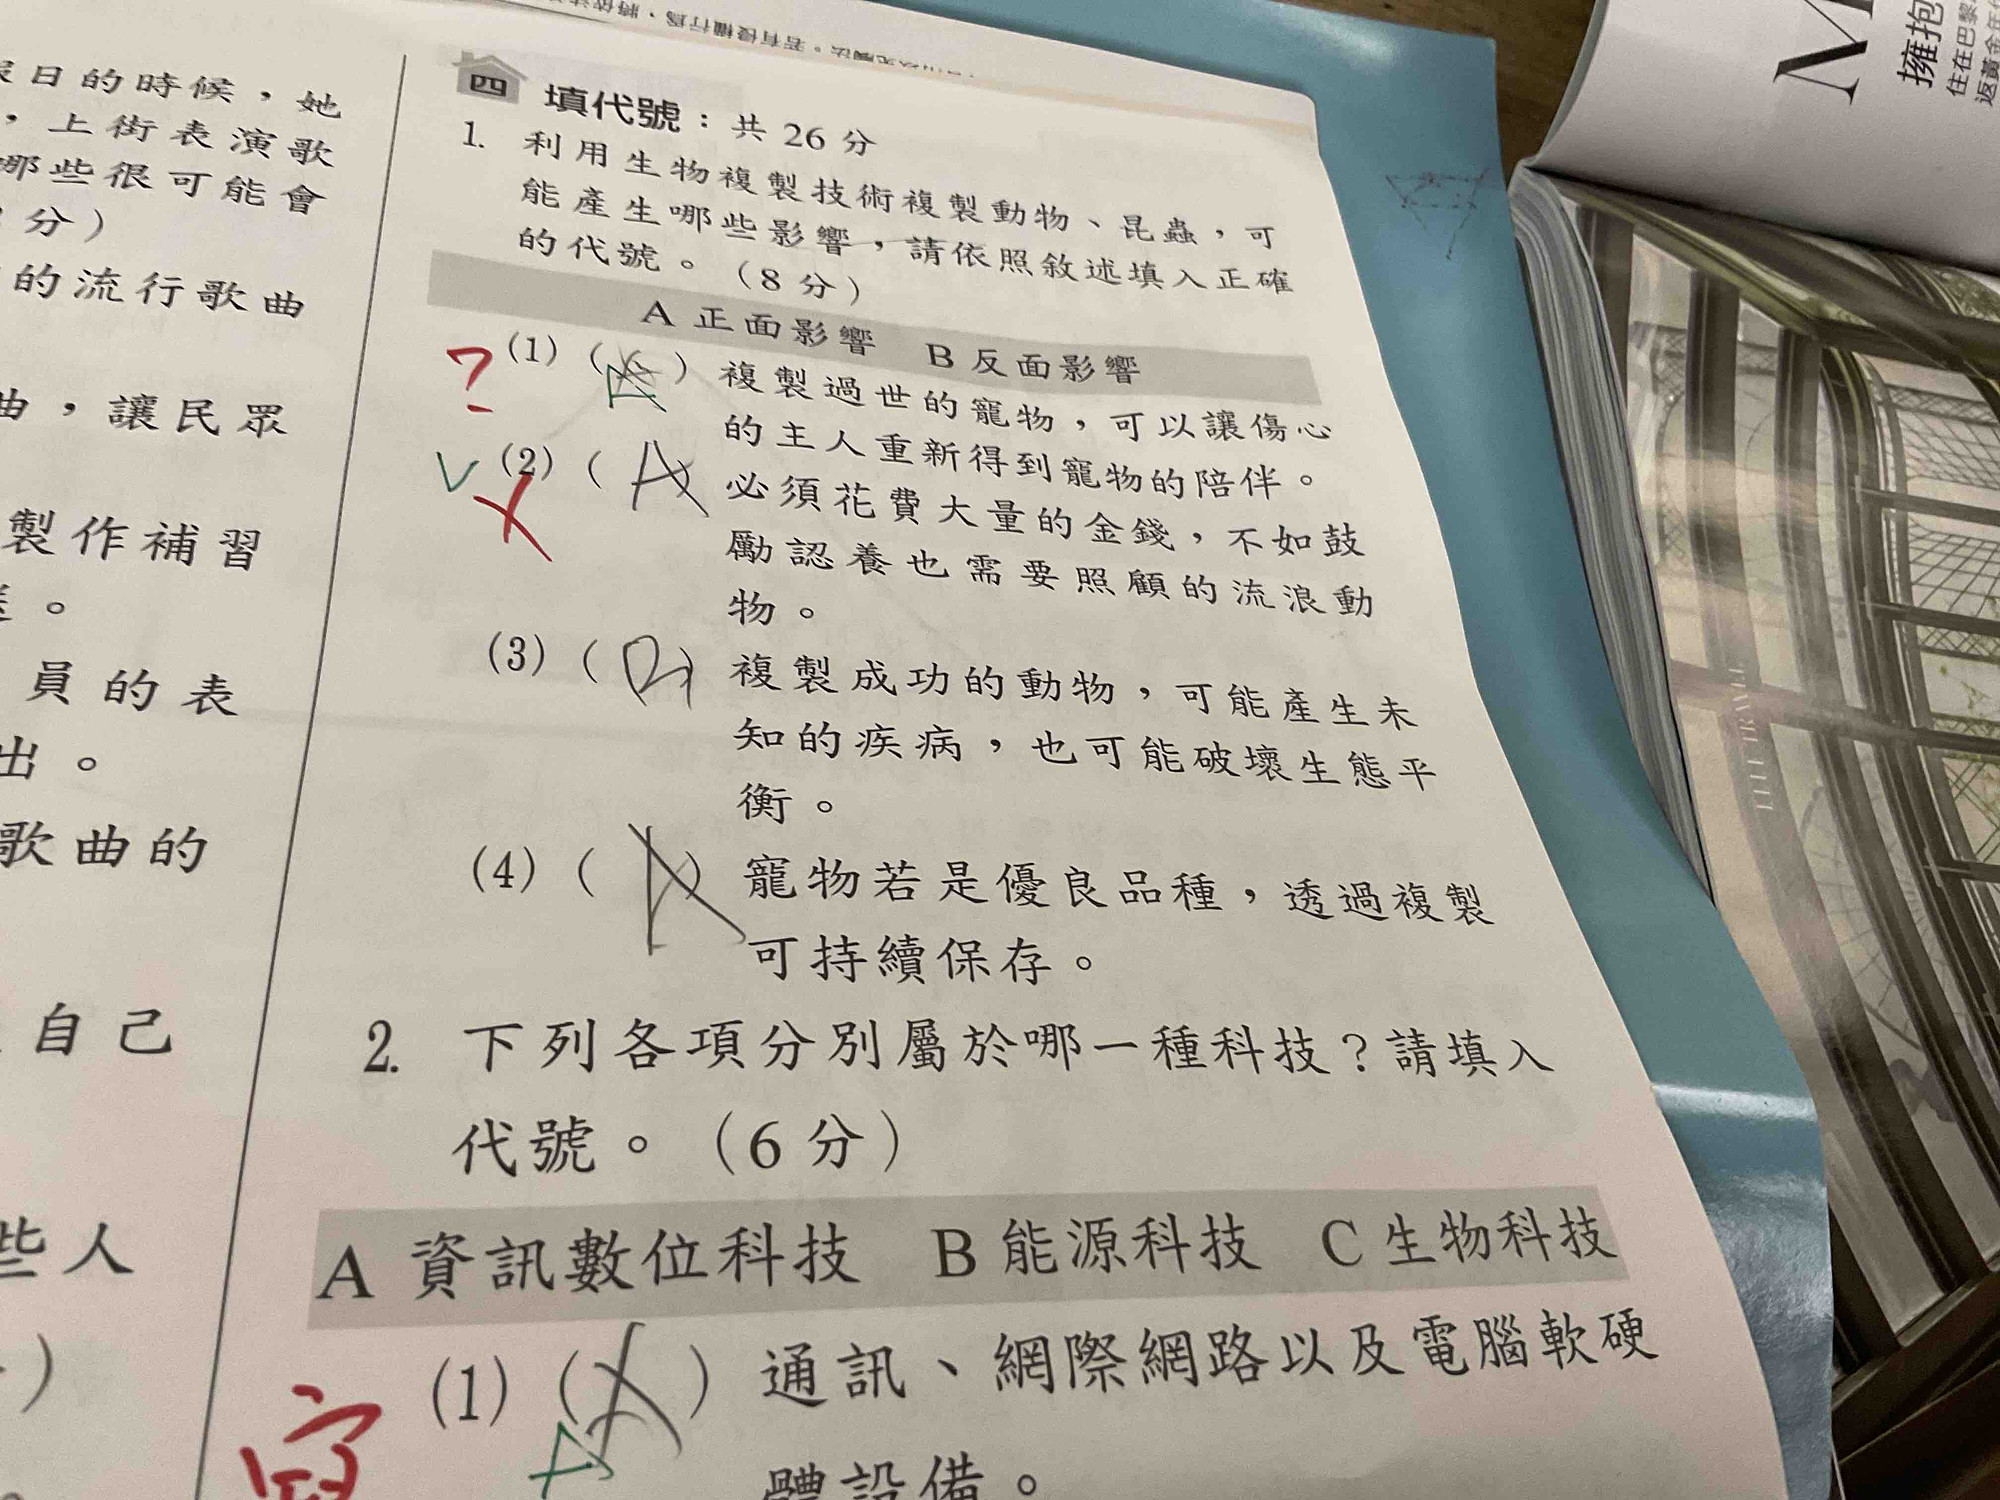 日的時候，她
，上街表演歌
哪些很可能會
分）
的流行歌曲
曲，讓民眾
製作補習
。
員的表
出。
歌曲的
自己
些人
）
四 填代號：共 26 分
1. 利用生物複製技術複製動物、昆蟲，可
能產生哪些影響，請依照敘述填入正確
的代號。（8 分）
A 正面影響 B 反面影響
? (1)（A）複製過世的寵物，可以讓傷心
的主人重新得到寵物的陪伴。
(2)（A）必須花費大量的金錢，不如鼓
勵認養也需要照顧的流浪動
物。
(3)（）複製成功的動物，可能產生未
知的疾病，也可能破壞生態平
衡。
(4)（A）寵物若是優良品種，透過複製
可持續保存。
2. 下列各項分別屬於哪一種科技？請填入
代號。（6 分）
A 資訊數位科技 B 能源科技 C 生物科技
(1)（A）通訊、網際網路以及電腦軟硬
體設備。
M
擁抱
住在巴黎
返黃金年代
ELLE TRAVEL